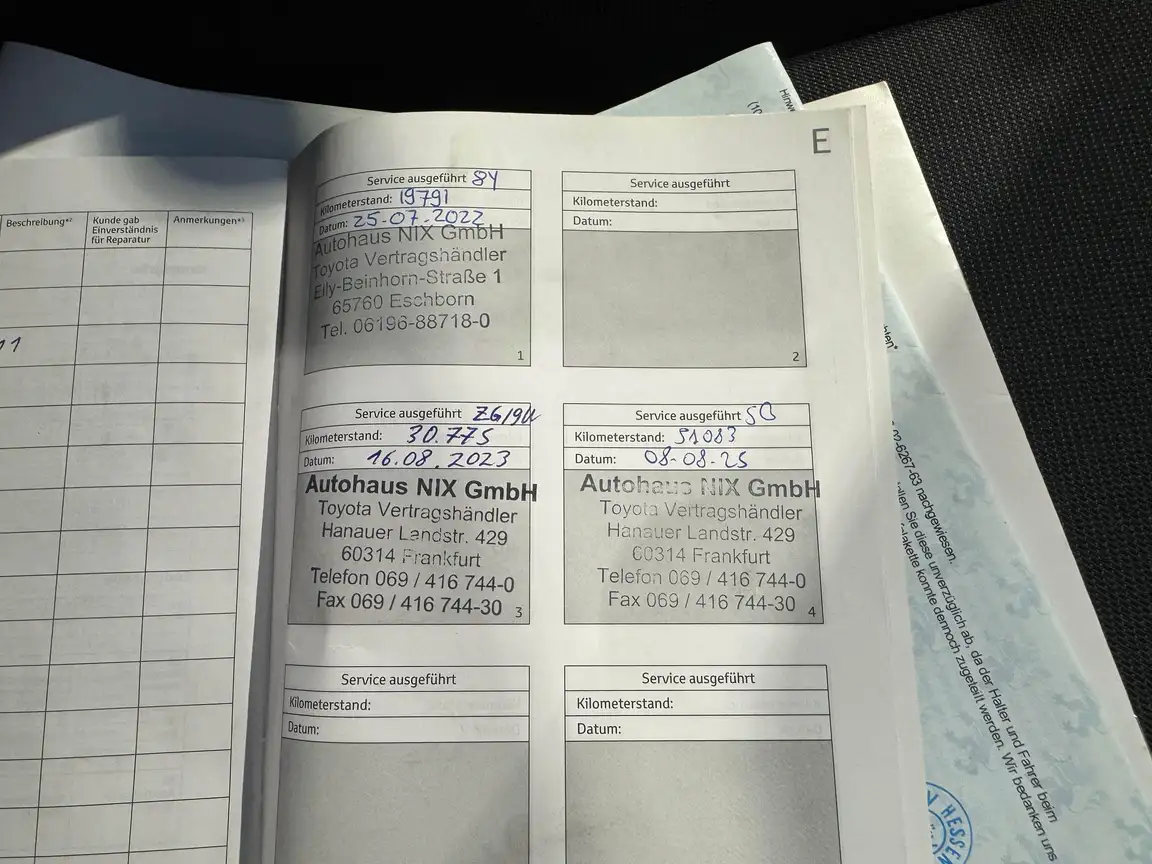 E
Beschreibung*²
Kunde gab
Einverständnis
für Reparatur
Anmerkungen*³
11
Service ausgeführt 84
Kilometerstand: 19791
Datum: 25-07-2022
Autohaus NIX GmbH
Toyota Vertragshändler
Elly-Beinhorn-Straße 1
65760 Eschborn
Tel. 06196-88718-0
1
Service ausgeführt
Kilometerstand:
Datum:
2
Service ausgeführt
Kilometerstand: 30.775
Datum: 16.08.2023
Autohaus NIX GmbH
Toyota Vertragshändler
Hanauer Landstr. 429
60314 Frankfurt
Telefon 069 / 416 744-0
Fax 069 / 416 744-30
3
Service ausgeführt
Kilometerstand: 51083
Datum: 08-08-25
Autohaus NIX GmbH
Toyota Vertragshändler
Hanauer Landstr. 429
60314 Frankfurt
Telefon 069 / 416 744-0
Fax 069 / 416 744-30
4
Service ausgeführt
Kilometerstand:
Datum:
Service ausgeführt
Kilometerstand:
Datum:
02-6267-63 nachgewiesen.
Sie diese unverzüglich ab, da der Halter und Fahrer beim
konnte dennoch zugeteilt werden. Wir bedanken uns
HESSEN